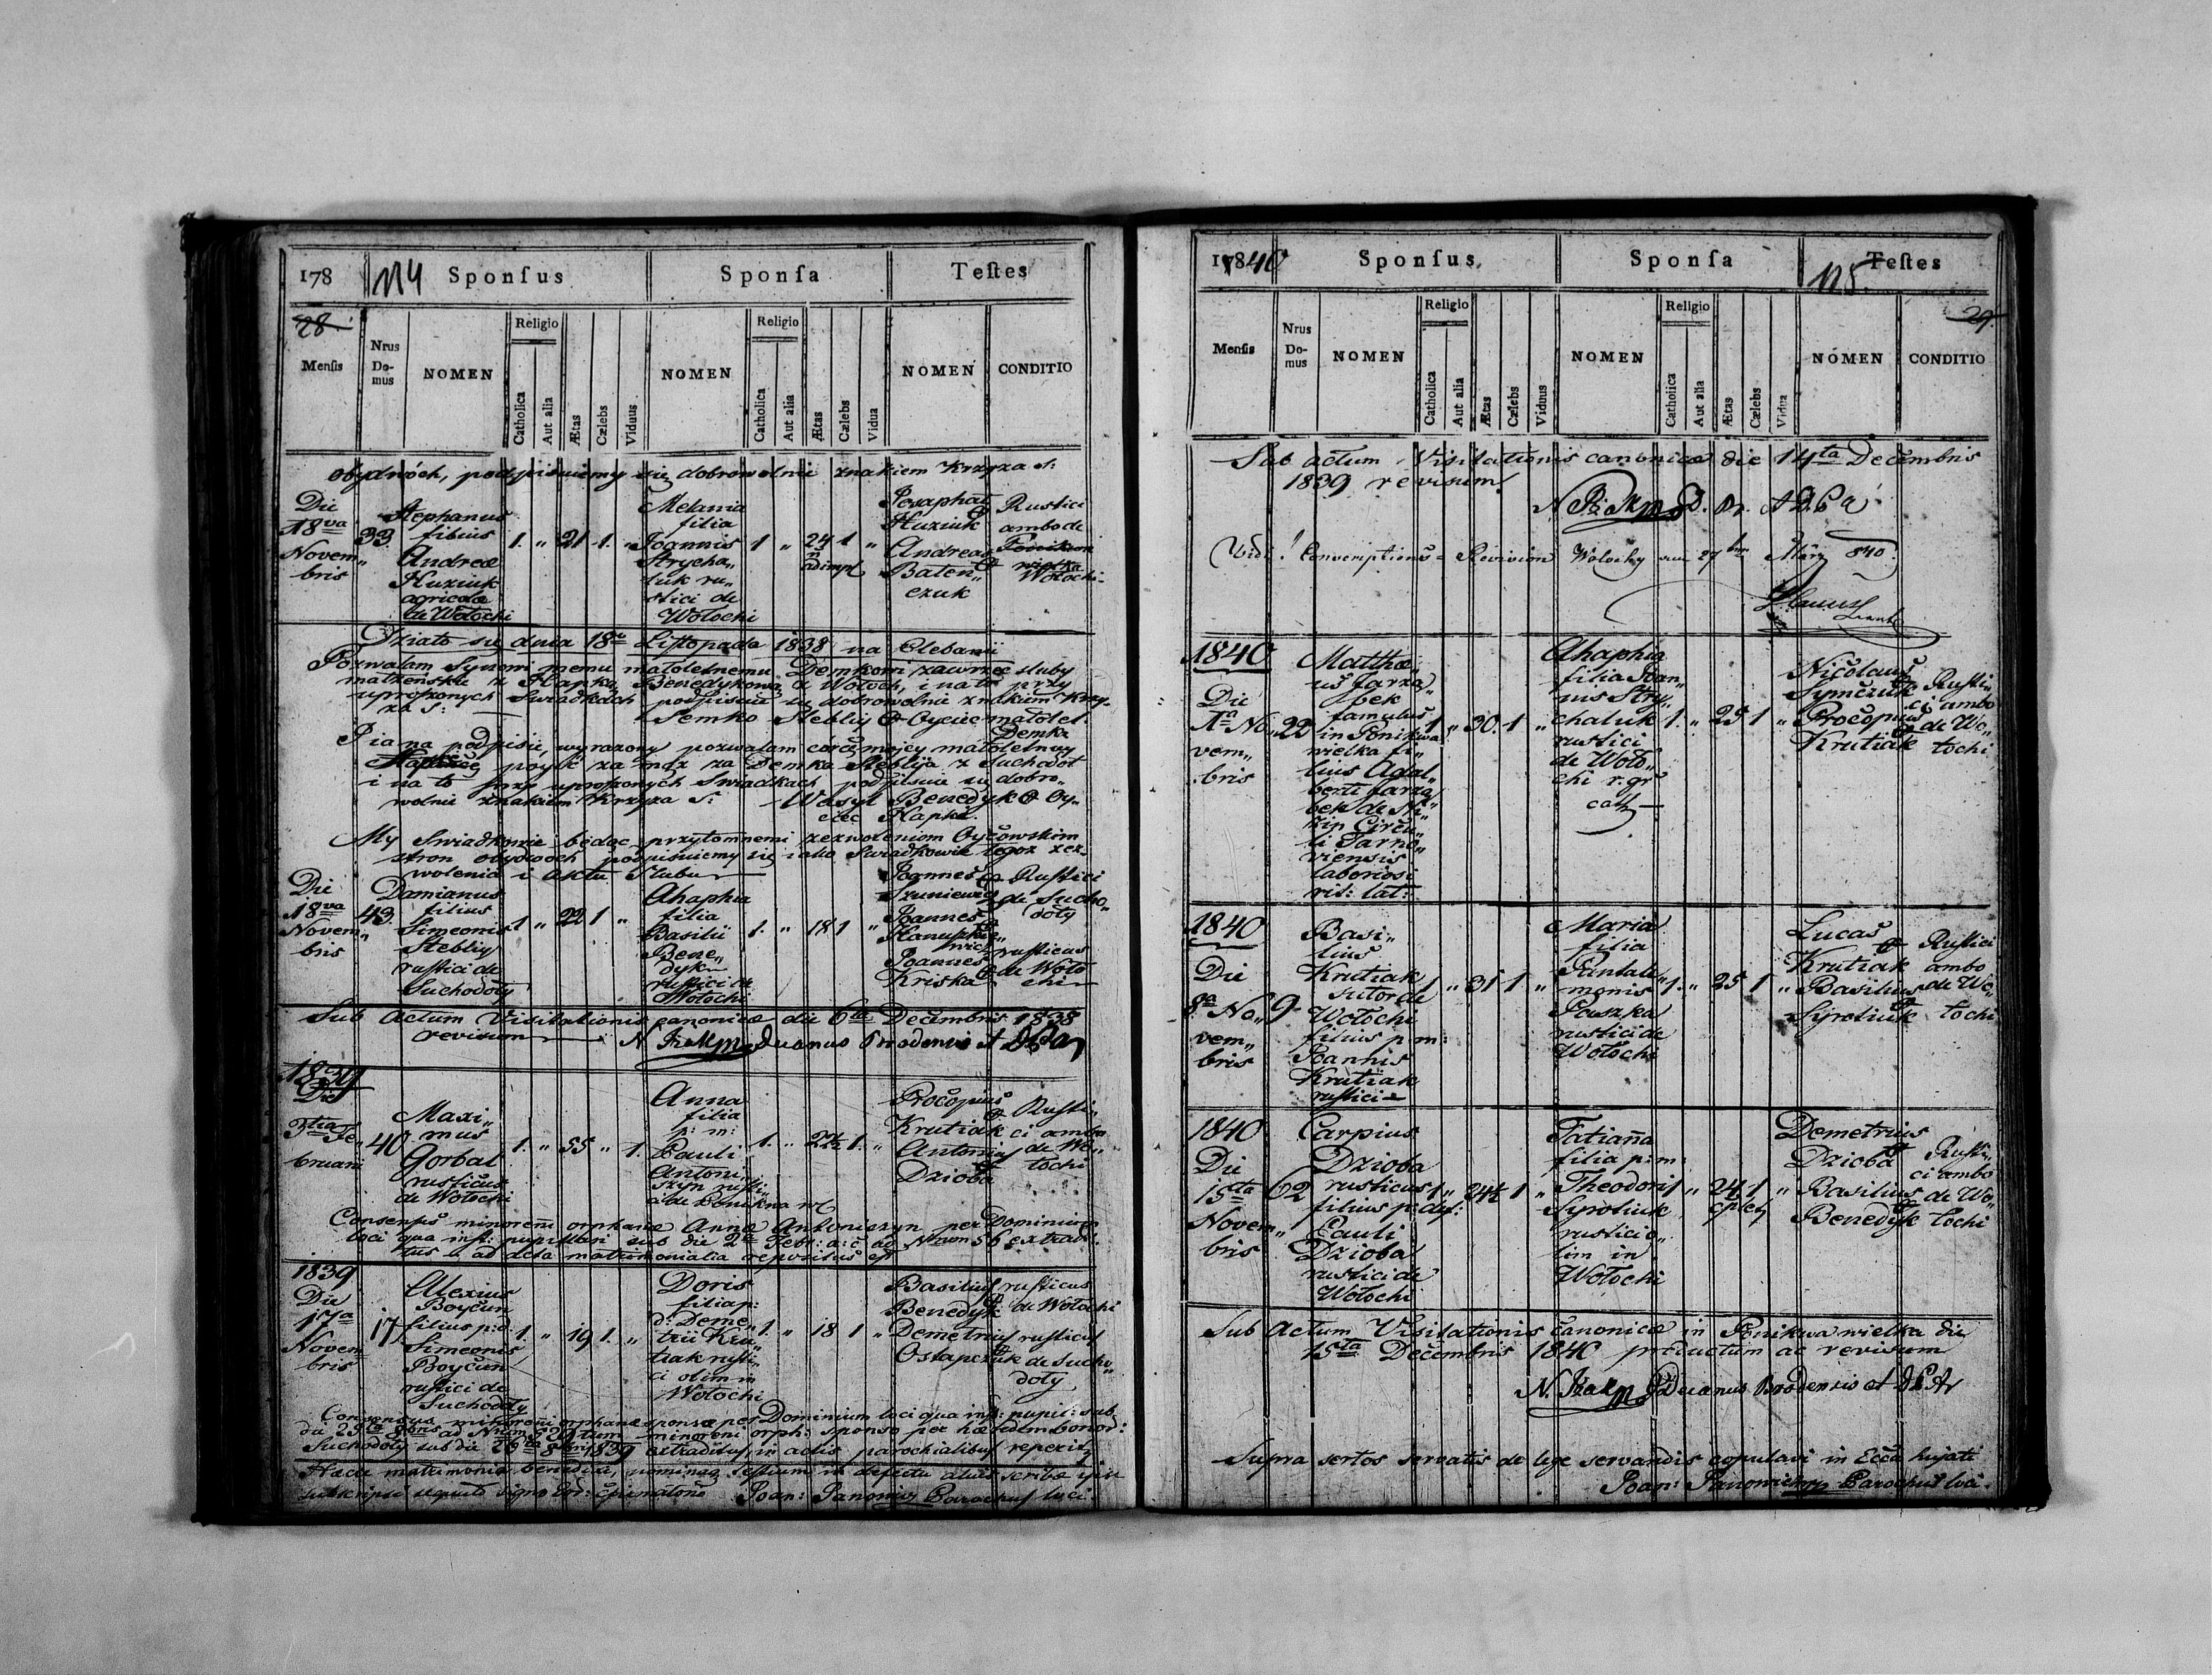 178 114 Sponſus Sponſa Teſtes
28.
Menſis Nrus Domus NOMEN Religio Catholica Aut alia Ætas Cælebs Viduus NOMEN Religio Catholica Aut alia Ætas Cælebs Vidua NOMEN CONDITIO
obydwóch, podpisuiemy się dobrowolnie znakiem krzyża S:
Die 18va Novem„bris
33.
Stephanus
filius
Andreæ
Huziuk
agricolæ
de Wołochi
1. „ 21 1. „
Melania
filia
Joannis
Strycha„
luk ru„
stici de
Wołochi
1 „ 24 1 „
adimpl
Josaphat
Huziuk
Andreas
Baten„
czuk
Rustici
ambo de
Wołochi
Działo się dnia 18o Listopada 1838 na Plebanii
Pozwalam Synowi memu małoletnemu Demkowi zawrzeć śluby
małżeńskie z Hapką Benedykową z Wołoch, i na to przy
uproszonych Swiadkach podpisuie się dobrowolnie znakiem krzy„
ża S:
Semko Steblij Oyciec małolet.
Demka
Ja na podpisie wyrażony pozwalam córce mojey małoletney
Hapce poyść za mąż za Demka Steblija z Suchodoł
i na to przy uproszonych Swiadkach podpisuie się dobro„
wolnie znakiem krzyża S: Wasyl Benedyk Oy„
ciec Hapki.
My Swiadkowie będąc przytomnemi zezwoleniom Oycowskim
stron obydwóch podpisuiemy się iako Swiadkowie tegoż zez„
wolenia i aktu Slubu
Die
18va
Novem„
bris
43.
Damianus
filius
Simeonis
Steblij
rustici de
Suchodoły
1 „ 22 1 „
Ahaphia
filia
Basilii
Bene„
dyk
rustici de
Wołochi
1. „ 18 1 „
Joannes
Szuniewicz
Joannes
Joannes
Kriska
Rustici
de Sucho„
doły
rusticus
de Woło
chi
Sub Actum Visitationis canonicæ die 6ta Decembris 1838
revisum
Decanus Brodensis
1839
Die
3tia Fe„
bruarii
40
Maxi„
mus
Gorbal
rusticus
de Wołochi
1. „ 55 „ 1.
Anna
filia
p: m:
Pauli
Antoni„
szyn rusti„
ci de Ponikwa
1. „ 22½ 1. „
Procopius
Krutiak
Antonius
Dzioba
Rusti„
ci ambo
de Wo„
łochi
Consensus minorenni orphanæ Annæ Antoniszyn per Dominium
loci qua inst: pupillari sub die 2da Febr: a: c: ad Nrum 56 extradi„
tus ad acta matrimonialia repositus est
1839
Die
17a
Novem
bris
17
Alexius
Boyčun
filius p: d:
Simeonis
Boyčun
rustici de
Suchodoły
1. „ 19 1. „
Doris
filia p:
d: Deme„
trii Kru„
tiak rusti„
ci olim in
Wołochi
1. „ 18 1 „
Basilius
Benedyk
Demetrius
Ostapczuk
rusticus
de Wołochi
rusticus
de Sucho„
doły
Consensus minorenni orphanæ sponsæ per Dominium loci qua inst: pupil: sub
Suchodoły sub die 29 8bris 1839 extraditus, in actis parochialibus reperitur
Joan: Janowicz Parochus loci.
17840 Sponſus Sponſa Teſtes
115.
29.
Menſis Nrus Domus NOMEN Religio Catholica Aut alia Ætas Cælebs Viduus NOMEN Religio Catholica Aut alia Ætas Cælebs Vidua NOMEN CONDITIO
Sub actum Visitationis canonicæ die 14ta Decembris
1839 revisum
Vidi! Conscriptions-Revision Wołochy am 27ten März 840
1840
Die
1a No„
vem„
bris
22
Matthæ„
us Jarza„
bek
famulus
in Ponikwa
wielka fi„
lius Adal„
berti Jarza„
bek de
Circu„
li Tarno„
viensis
laboriosi
rit: lat:
1 „ 30. 1 „
Ahaphia
filia Joan„
nis Stry„
chaluk
rustici
de Woło„
chi r. gr
cath
1. „ 25 1 „
Nicolaus
Symczuk
Procopius
Krutiak
Rusti„
ci ambo
de Wo„
łochi
1840
Die
8a No„
vem„
bris
9
Basi„
lius
Krutiak
sutor de
Wołochi
filius p: m:
Joannis
Krutiak
rustici
1 „ 31 1 „
Maria
filia
Pantale„
monis
Pauszka
rustici de
Wołochi
1. „ 25 1 „
Lucas
Krutiak
Basilius
Syrotiuk
Rustici
ambo
de Wo„
łochi
1840
Die
15ta
Novem„
bris
62
Carpius
Dzioba
rusticus
filius p: def:
Pauli
Dzioba
rustici de
Wołochi
1 „ 24½ 1 „
Tatianna
filia p: m:
Theodori
Syrotiuk
rustici o„
lim in
Wołochi
1 „ 24 1 „
cplet
Demetrius
Dzioba
Basilius
Benedyk
Rusti„
ci ambo
de Wo„
łochi
Sub Actum Visitationis canonicæ in Ponikwa wielka die
15ta Decembris 1840 productum ac revisum
Decanus Brodensis
Supra sertos servatis de lege servandis copulavi in Eccla hujati
Joan: Janowicz Parochus loci.